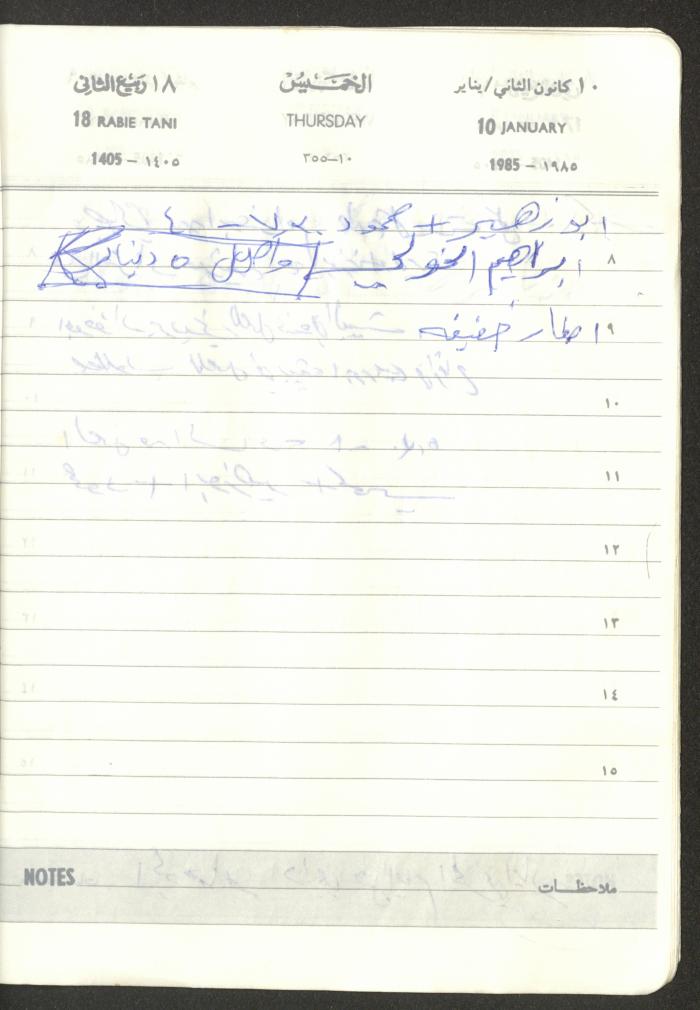 ١٠ كانون الثاني/يناير الخميس ١٨ ربيع الثاني
10 JANUARY THURSDAY 18 RABIE TANI
1985 - ١٩٨٥ ١٠-٣٥٥ 1405 - ١٤٠٥
ابو زهير + محمود
٨ ابراهيم الخولي واصل ٥ دنانير
٩ امطار خفيفه
١٠
١١
١٢
١٣
١٤
١٥
NOTES ملاحظات